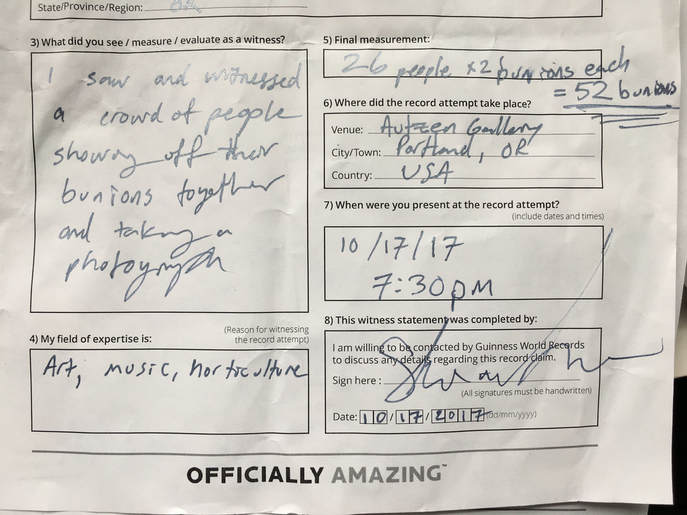 State/Province/Region: OR
3) What did you see / measure / evaluate as a witness?
I saw and witnessed
a crowd of people
showing off their
bunions together
and taking a
photograph
4) My field of expertise is:
(Reason for witnessing
the record attempt)
Art, music, horticulture
5) Final measurement:
26 people x2 bunions each
= 52 bunions
6) Where did the record attempt take place?
Venue: Autzen Gallery
City/Town: Portland, OR
Country: USA
7) When were you present at the record attempt?
(include dates and times)
10/17/17
7:30pm
8) This witness statement was completed by:
I am willing to be contacted by Guinness World Records
to discuss any details regarding this record claim.
Sign here :
(All signatures must be handwritten)
Date: 10/17/2017 (dd/mm/yyyy)
OFFICIALLY AMAZING™